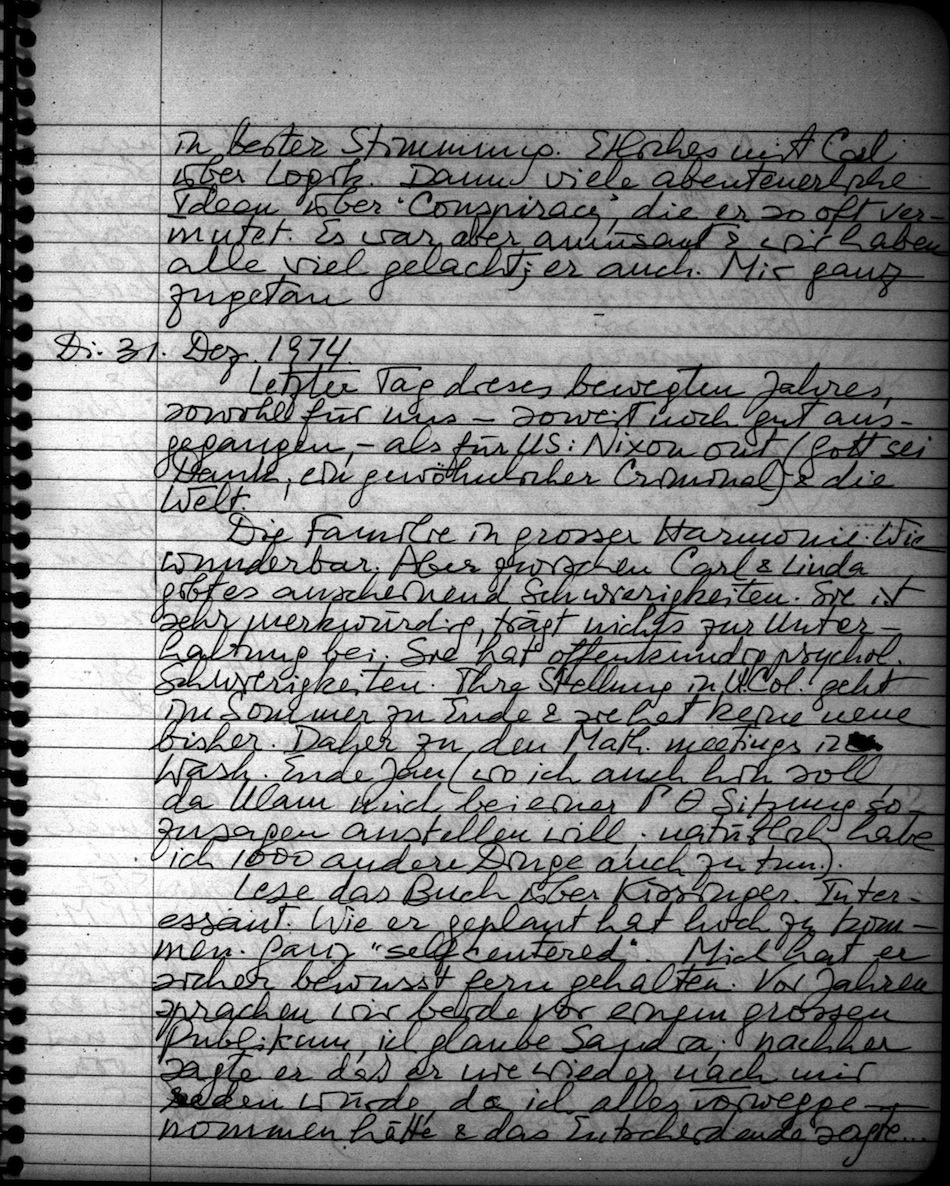 in bester Stimmung. Etliches mit Carl
über Logik. Dann viele abenteuerliche
Ideen über "Conspiracy", die er so oft ver-
mutet. Es war aber amüsant & wir haben
alle viel gelacht; er auch. Mir ganz
zugetan
Di. 31. Dez. 1974.
Letzter Tag dieses bewegten Jahres,
sowohl für uns – soweit noch gut aus-
gegangen, – als für US: Nixon out (Gott sei
Dank, ein gewöhnlicher Criminal) & die
Welt.
Die Familie in grosser Harmonie. Wie
wunderbar. Aber zwischen Carl & Linda
gibt es anscheinend Schwierigkeiten. Sie ist
sehr merkwürdig, trägt nichts zur Unter-
haltung bei. Sie hat offenkundig psychol.
Schwierigkeiten. Ihre Stellung in U.Col. geht
im Sommer zu Ende & sie hat keine neue
bisher. Daher zu den Math. meetings in
Wash. Ende Jan (wo ich auch hin soll,
da Ulam mich bei einer Γ Θ Sitzung so-
zusagen anstellen will. natürlich habe
ich 1000 andere Dinge auch zu tun).
Lese das Buch über Kissinger. Inter-
essant. Wie er geplant hat hoch zu kom-
men. Ganz "self centered". Mich hat er
sicher bewusst fern gehalten. Vor Jahren
sprachen wir beide vor einem grossen
Publikum, ich glaube Sandia; nachher
sagte er das er nie wieder nach mir
reden würde, da ich alles vorwegge-
nommen hätte & das Entscheidende sagte...